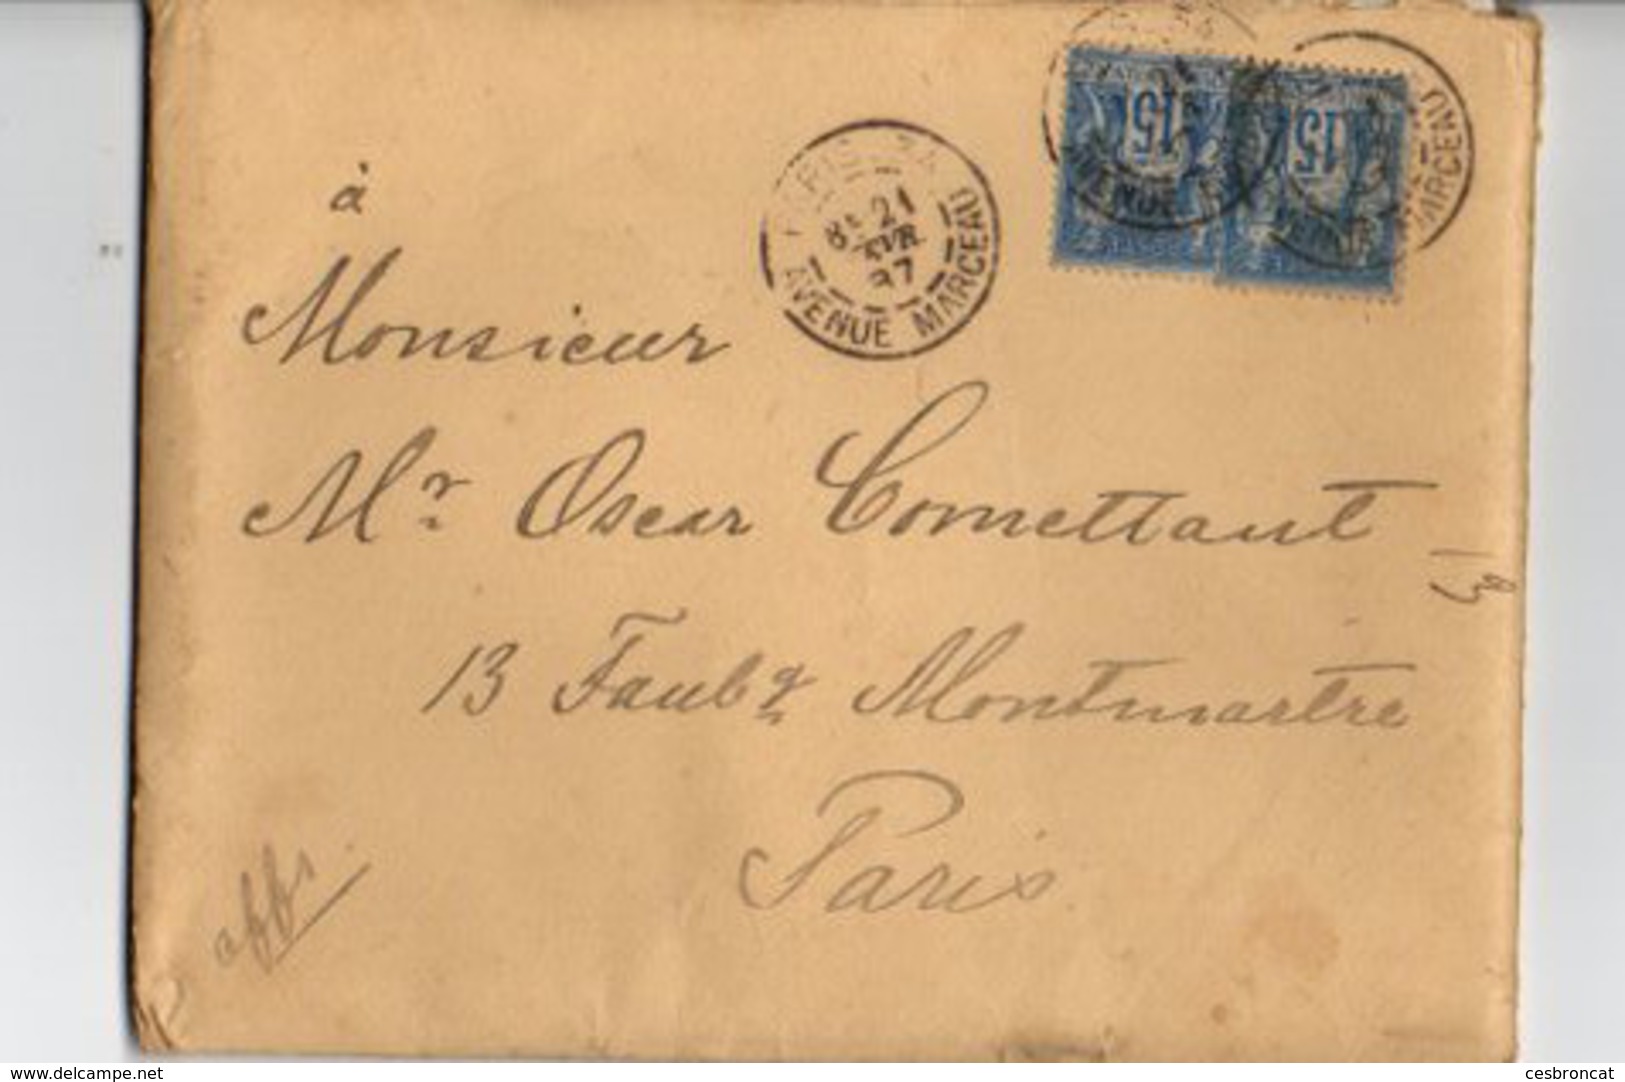 à
Monsieur
Mr Oscar Comettant
13 Faubg Montmartre
Paris
affr
13
21
AVR
97
AVENUE MARCEAU
15
15
AVENUE
MARCEAU
www.delcampe.net
cesbroncat